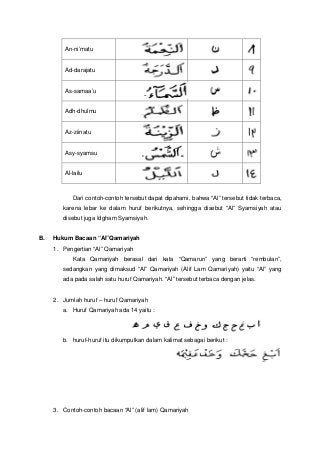 An-ni'matu اَلنِّعْمَةُ ن ٨
Ad-darajatu اَلدَّرَجَةُ د ٩
As-samaa'u اَلسَّمَآءُ س ١٠
Adh-dhulmu اَلظُّلْمُ ظ ١١
Az-ziinatu اَلزِّيْنَةُ ز ١٢
Asy-syamsu اَلشَّمْسُ ش ١٣
Al-lailu اَللَّيْلُ ل ١٤
Dari contoh-contoh tersebut dapat dipahami, bahwa "Al" tersebut tidak terbaca,
karena lebar ke dalam huruf berikutnya, sehingga disebut "Al" Syamsiyah atau
disebut juga Idgham Syamsiyah.
B. Hukum Bacaan "Al" Qamariyah
1. Pengertian "Al" Qamariyah
Kata Qamariyah berasal dari kata "Qamarun" yang berarti "rembulan",
sedangkan yang dimaksud "Al" Qamariyah (Alif Lam Qamariyah) yaitu "Al" yang
ada pada salah satu huruf Qamariyah. "Al" tersebut terbaca dengan jelas.
2. Jumlah huruf – huruf Qamariyah
a. Huruf Qamariyah ada 14 yaitu :
ا ب غ ح ج ك و خ ف ع ق ي م ه
b. huruf-huruf itu dikumpulkan dalam kalimat sebagai berikut :
اَبْغِ حَجَّكَ وَخَفْ عَقِيْمَهُ
3. Contoh-contoh bacaan "Al" (alif lam) Qamariyah